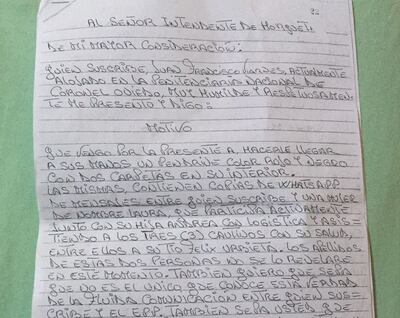 AL SEÑOR INTENDENTE DE HORQUETA
DE MI MAYOR CONSIDERACION:
QUIEN SUSCRIBE, JUAN FRANCISCO ACTUALMENTE
ALOJADO EN LA PENITENCIARIA NACIONAL DE
CORONEL OVIEDO, MUY HUMILDE Y RESPETUOSAMEN-
TE ME PRESENTO Y DIGO:
MOTIVO
QUE VENGO POR LA PRESENTE A HACERLE LLEGAR
A SUS MANOS UN PENDRIVE COLOR ROJO Y NEGRO
CON DOS CARPETAS EN SU INTERIOR.
LAS MISMAS, CONTIENEN COPIAS DE WHATSAPP
DE MENSAJES ENTRE QUIEN SUSCRIBE Y UNA MUJER
DE NOMBRE LAURA, QUE PARTICIPA ACTIVAMENTE
JUNTO CON SU HIJA ANDREA CON LOGISTICA Y ASIS-
TIENDO A LOS TRES (3) CAUTIVOS CON SU SALUD,
ENTRE ELLOS A SU TIO FELIX URBIETA. LOS APELLIDOS
DE ESTAS DOS PERSONAS NO SE LO REVELARE
EN ESTE MOMENTO. TAMBIEN QUIERO QUE SEPA
QUE NO ES EL UNICO QUE CONOCE ESTA VERDAD
DE LA FLUIDA COMUNICACION ENTRE QUIEN SUS-
CRIBE Y EL EPP. TAMBIEN SEPA USTED QUE